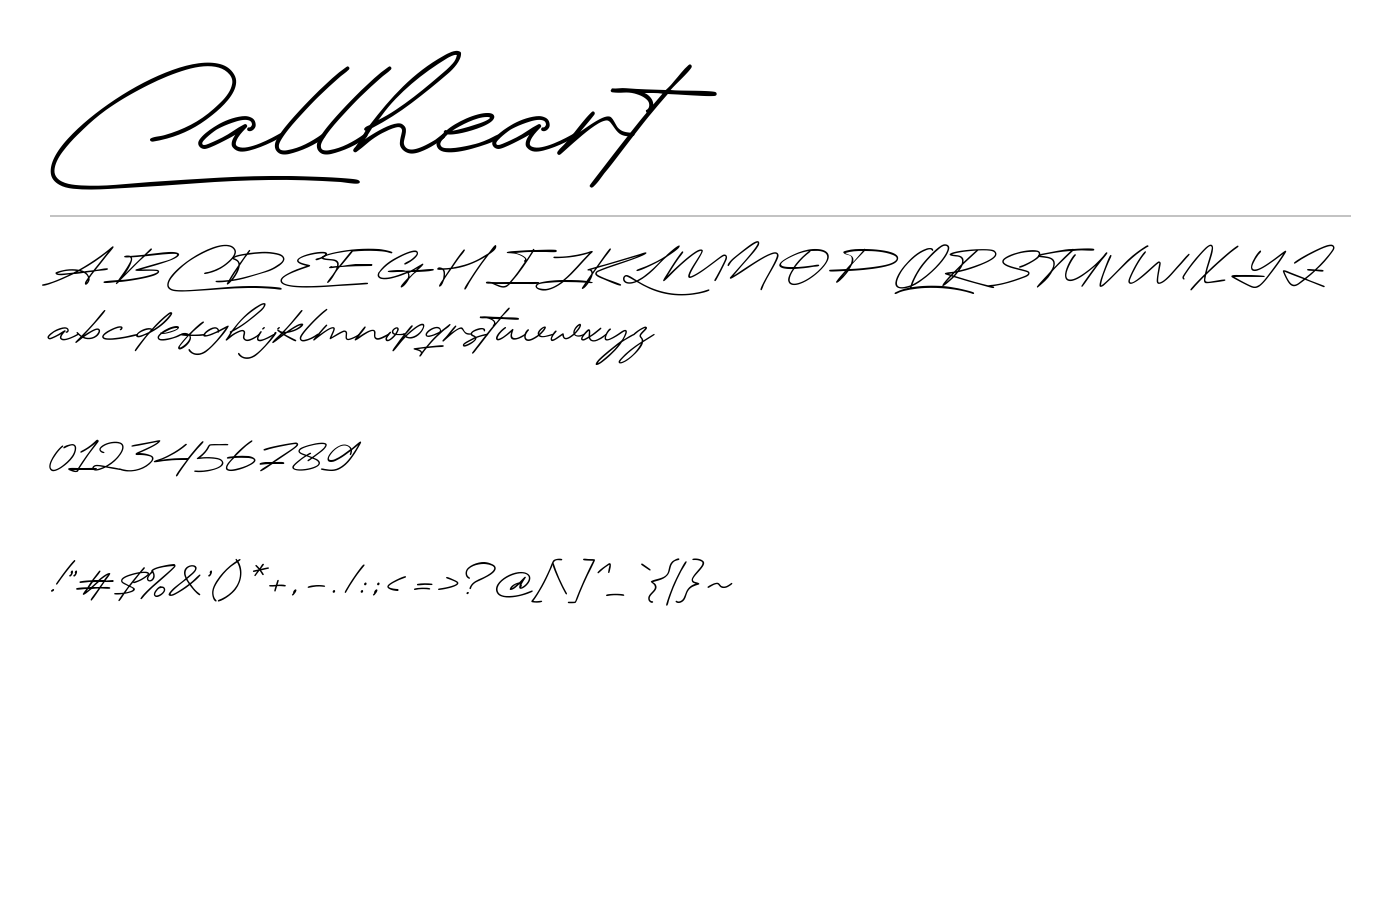 Callheart
ABCDEFGHIJKLMNOPQRSTUVWXYZ
abcdefghijklmnopqrstuvwxyz
0123456789
!"#$%&'()*+,-./:;<=>?@[\]^_`{|}~